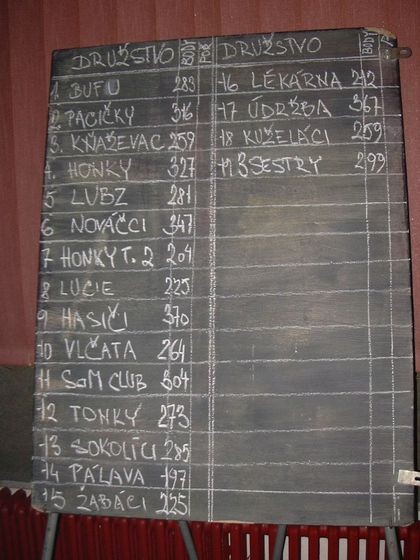 DRUŽSTVO BODY POŘ
1 BUFU 283
2 PACIČKY 316
3. KŇAŽEVAC 259
4. HONKY 327
5 LUBZ 281
6 NOVÁČCI 347
7 HONKY T. 2 204
8 LUCIE 225
9 HASIČI 370
10 VLČATA 264
11 SaM CLUB 304
12 TONKY 273
13 SOKOLÍCI 285
14 PÁLAVA 197
15 ŽABÁCI 225
DRUŽSTVO BODY
16 LÉKÁRNA 212
17 ÚDRŽBA 367
18 KUŽELÁCI 259
19 3 SESTRY 299